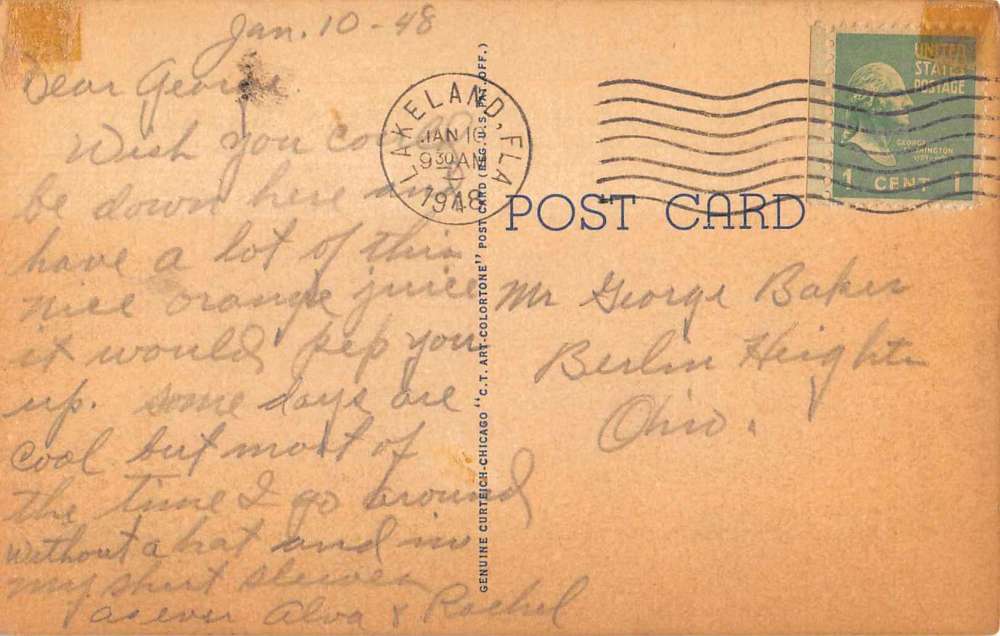 Jan. 10 - 48
Dear George.
Wish you could
be down here and
have a lot of this
nice orange juice
it would pep you
up. some days are
cool but most of
the time I go around
without a hat and in
my shirt sleeves
as ever Alva & Rachel
LAKELAND, FLA
JAN 10
9 30 AM
1948
GENUINE CURTEICH-CHICAGO "C.T. ART-COLORTONE" POST CARD (REG. U.S. PAT. OFF.)
UNITED
STATES
POSTAGE
GEORGE
WASHINGTON
1 CENT 1
POST CARD
Mr George Baker
Berlin Heights
Ohio.